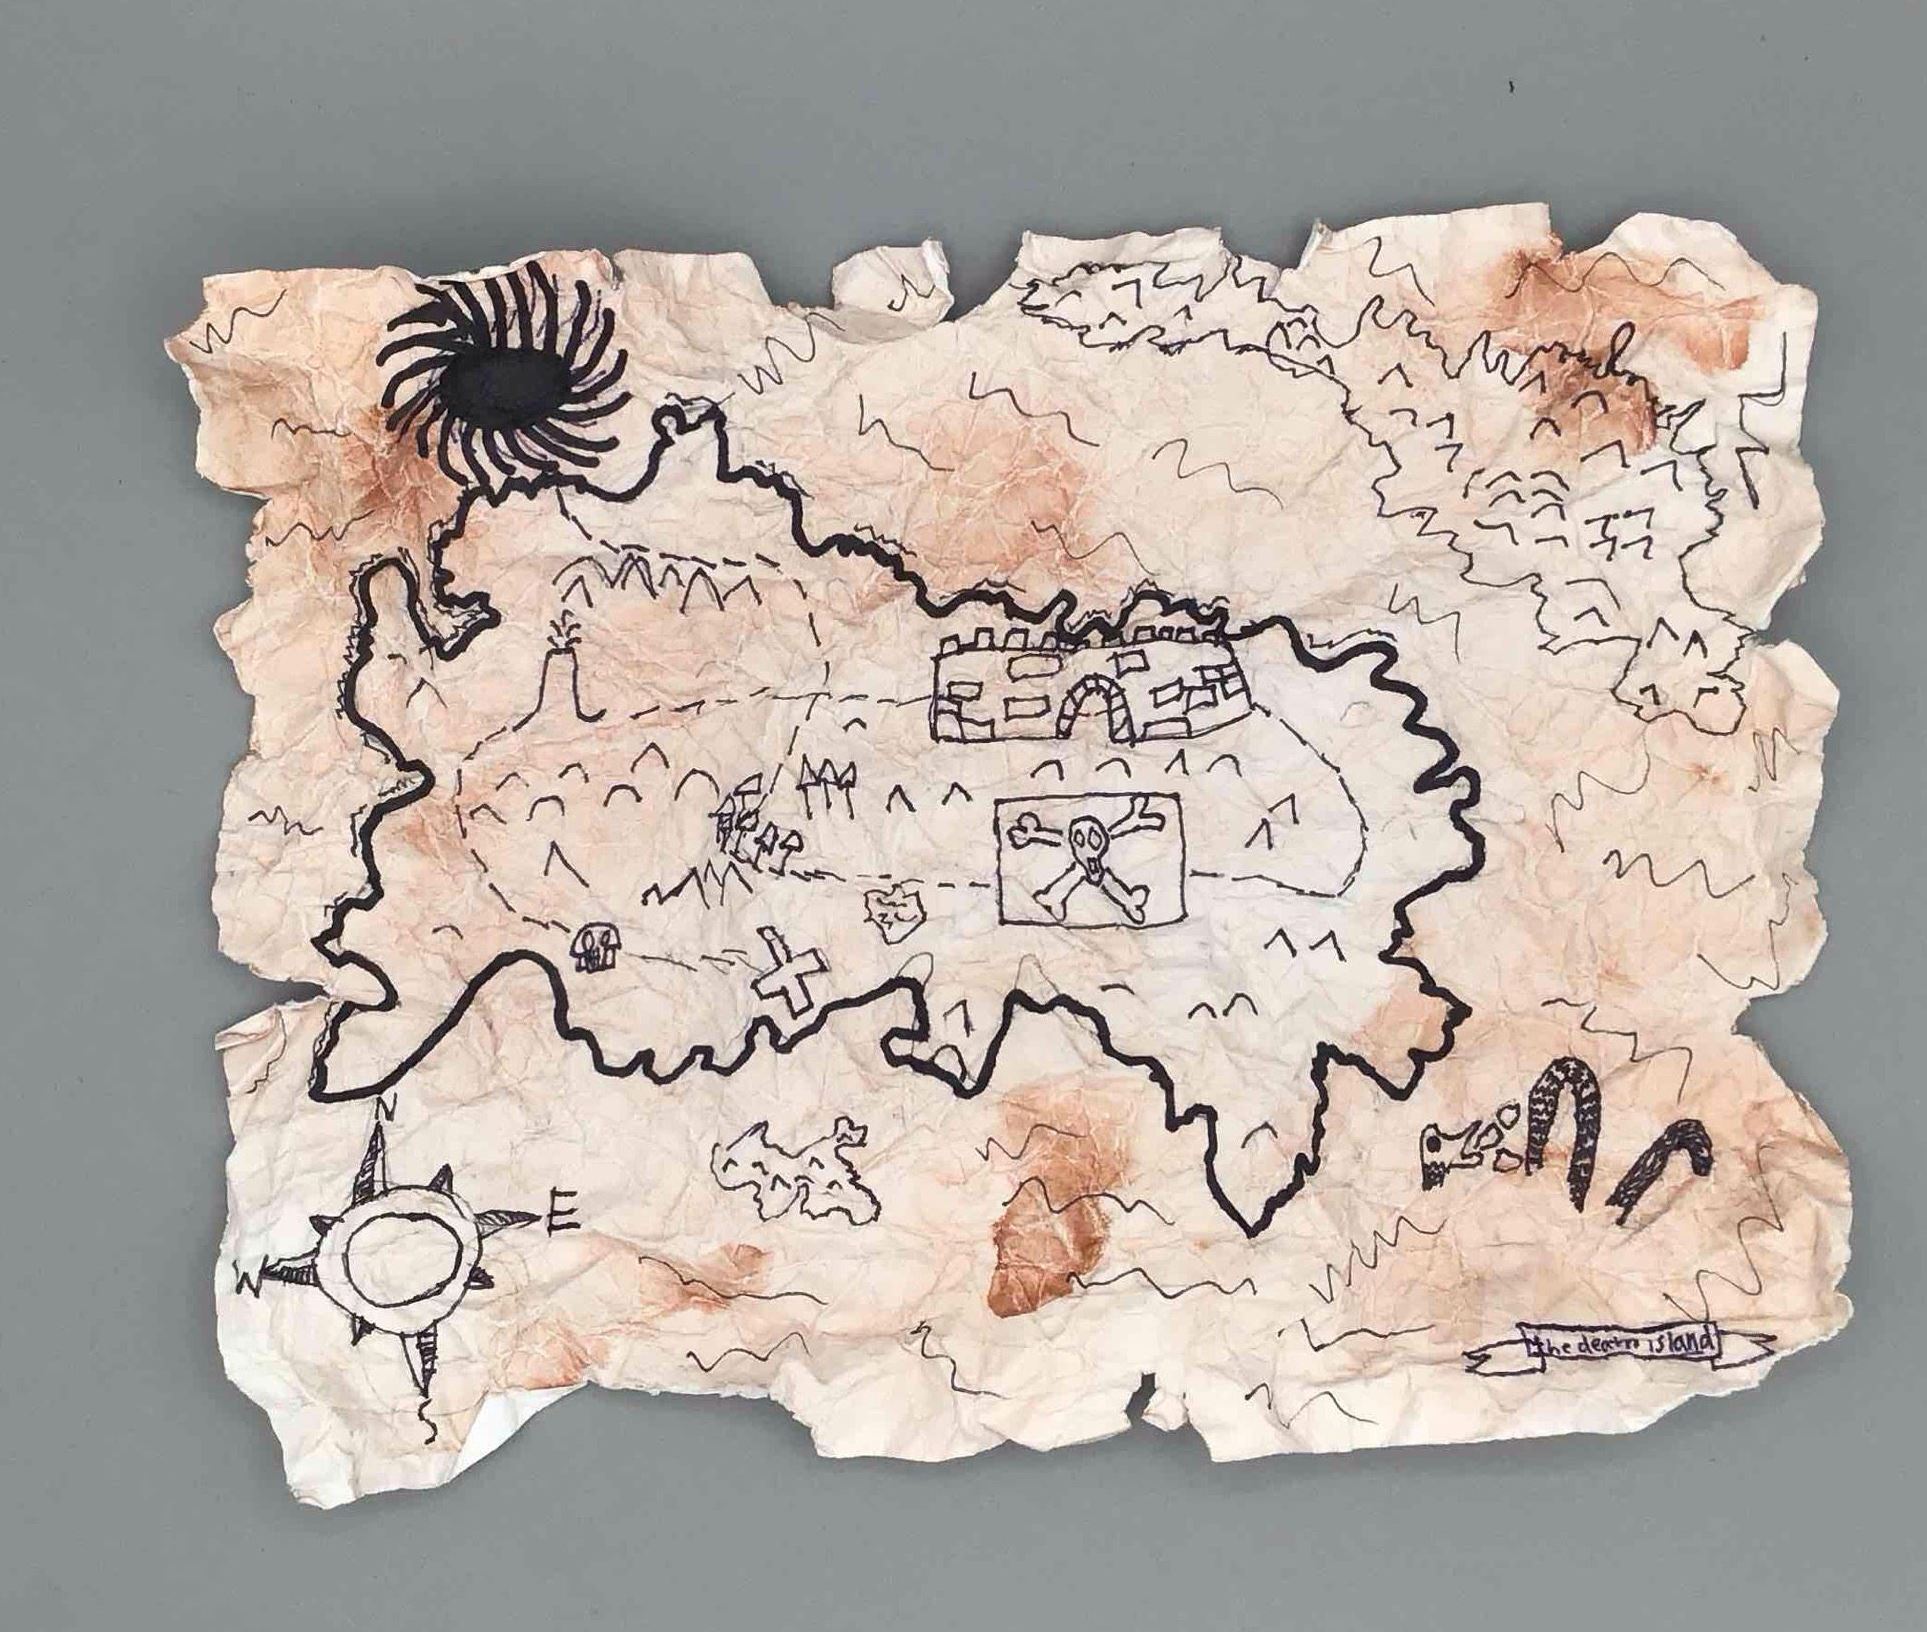 N
W E
S
the death island